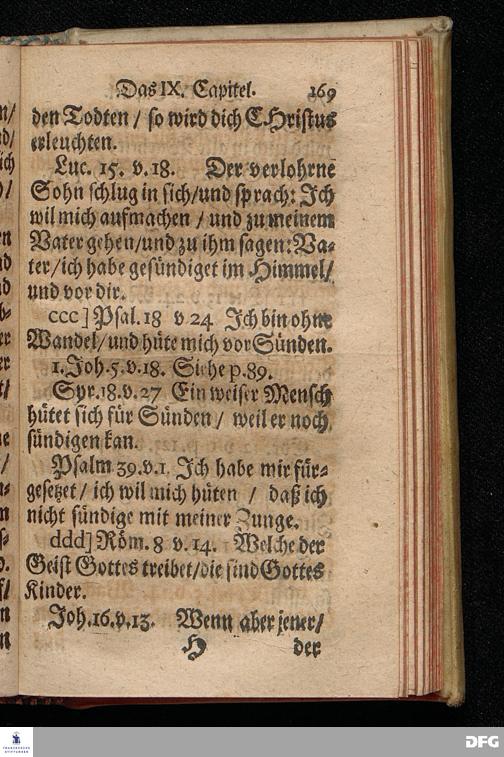 Das IX. Capitel. 169
den Todten / so wird dich C.Hristus
erleuchten.
Luc. 15. v. 18. Der verlohrne
Sohn schlug in sich/und sprach: Ich
wil mich aufmachen / und zu meinem
Vater gehen/und zu ihm sagen: Va-
ter/ich habe gesündiget im Himmel/
und vor dir.
ccc] Psal. 18 v. 24 Ich bin ohne
Wandel/und hüte mich vor Sünden.
1. Joh. 5. v. 18. Siehe p. 89.
Spr. 18. v. 27 Ein weiser Mensch
hütet sich für Sünden / weil er noch
sündigen kan.
Psalm 39. v. 1. Ich habe mir für-
gesetzet / ich wil mich hüten / daß ich
nicht sündige mit meiner Zunge.
ddd] Röm. 8 v. 14. Welche der
Geist Gottes treibet/die sind Gottes
Kinder.
Joh. 16. v. 13. Wenn aber jener/
H der
FRANCKESCHE
STIFTUNGEN
DFG